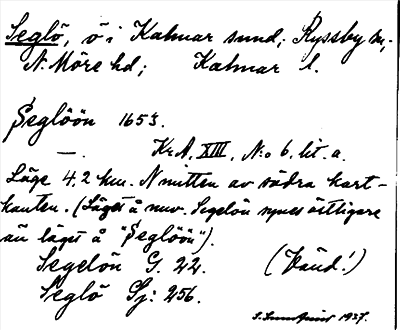 Seglö, ö i Kalmar sund; Ryssby sn,
N. Möre hd; Kalmar l.
Seglöön 1653.
—. Kr.A, XIII, N:o 6. lit. a.
Läge 4,2 km. N mitten av södra kart-
kanten. (Läget å nuv. Segelön synes östligare
än läget å "Seglöön").
Segelön G. 22. (Vänd!)
Seglö Sj: 256.
1937.